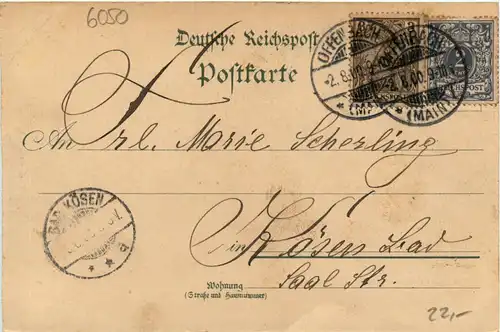 6050
Deutsche Reichspost
Postkarte
OFFENBACH
-2.8.00.
* (MAIN)
2
REICHSPOST
An Frl. Marie Scherling
BAD KÖSEN
* * a
in Kösen Bad
Wohnung
(Straße und Hausnummer)
Saal Str.
22,-